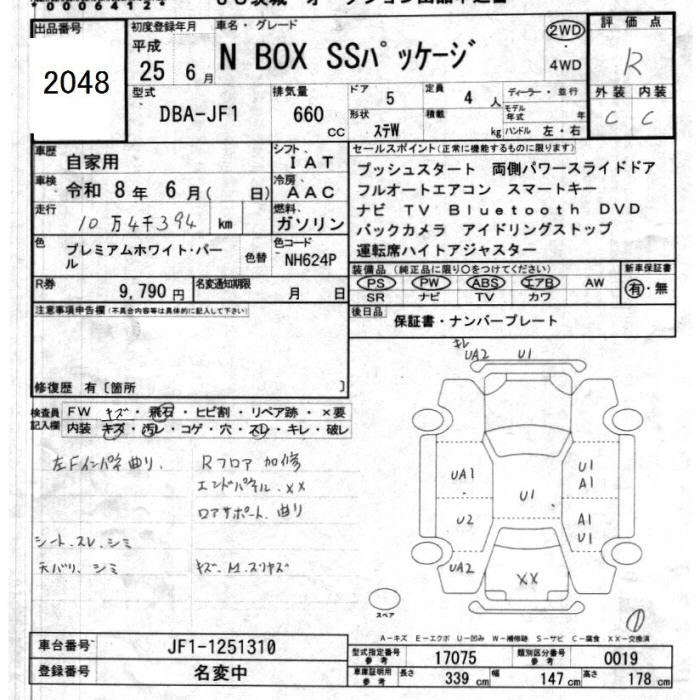 出品番号
2048
初度登録年月
平成
25 6月
車名・グレード
N BOX SSパッケージ
2WD
・
4WD
評価点
R
外装 内装
C C
型式
DBA-JF1
排気量
660 CC
ドア 5
定員 4 人
形状 ステW
積載 kg
ディーラー・並行
モデル年式 年
ハンドル 左・右
車歴 自家用
シフト IAT
車検 令和 8年 6月( 日)
冷房 AAC
走行 10万4千394 km
燃料 ガソリン
色 プレミアムホワイト・パール
色替
色コード NH624P
R券 9,790 円
名変通知期限 月 日
セールスポイント(正常に機能するものに限ります)
プッシュスタート 両側パワースライドドア
フルオートエアコン スマートキー
ナビ TV Bluetooth DVD
バックカメラ アイドリングストップ
運転席ハイトアジャスター
装備品(純正品に限り〇をつけてください)
新車保証書
PS PW ABS エアB AW
SR ナビ TV カワ
有・無
後日品 保証書・ナンバープレート
注意事項申告欄(不具合内容等は具体的に記入して下さい)
修復歴 有〔箇所 〕
検査員記入欄
FW キズ・飛石・ヒビ割・リペア跡・×要
内装 キズ・汚レ・コゲ・穴・スレ・キレ・破レ
左Fインパネ曲り、
Rフロア加修
エンドパネル、XX
ロアサポート、曲り
シート、スレ、シミ
天バリ、シミ
キズ、M、スリキズ
キレ
UA2 U1
UA1
U1
A1
U1
U2
A1
U1
UA2
XX
スペア
①
A−キズ E−エクボ U−凹み W−補修跡 S−サビ C−腐食 XX−交換済
車台番号 JF1-1251310
登録番号 名変中
型式指定番号 参考 17075
類別区分番号 参考 0019
車庫証明用 参考 長さ 339 cm 幅 147 cm 高さ 178 cm